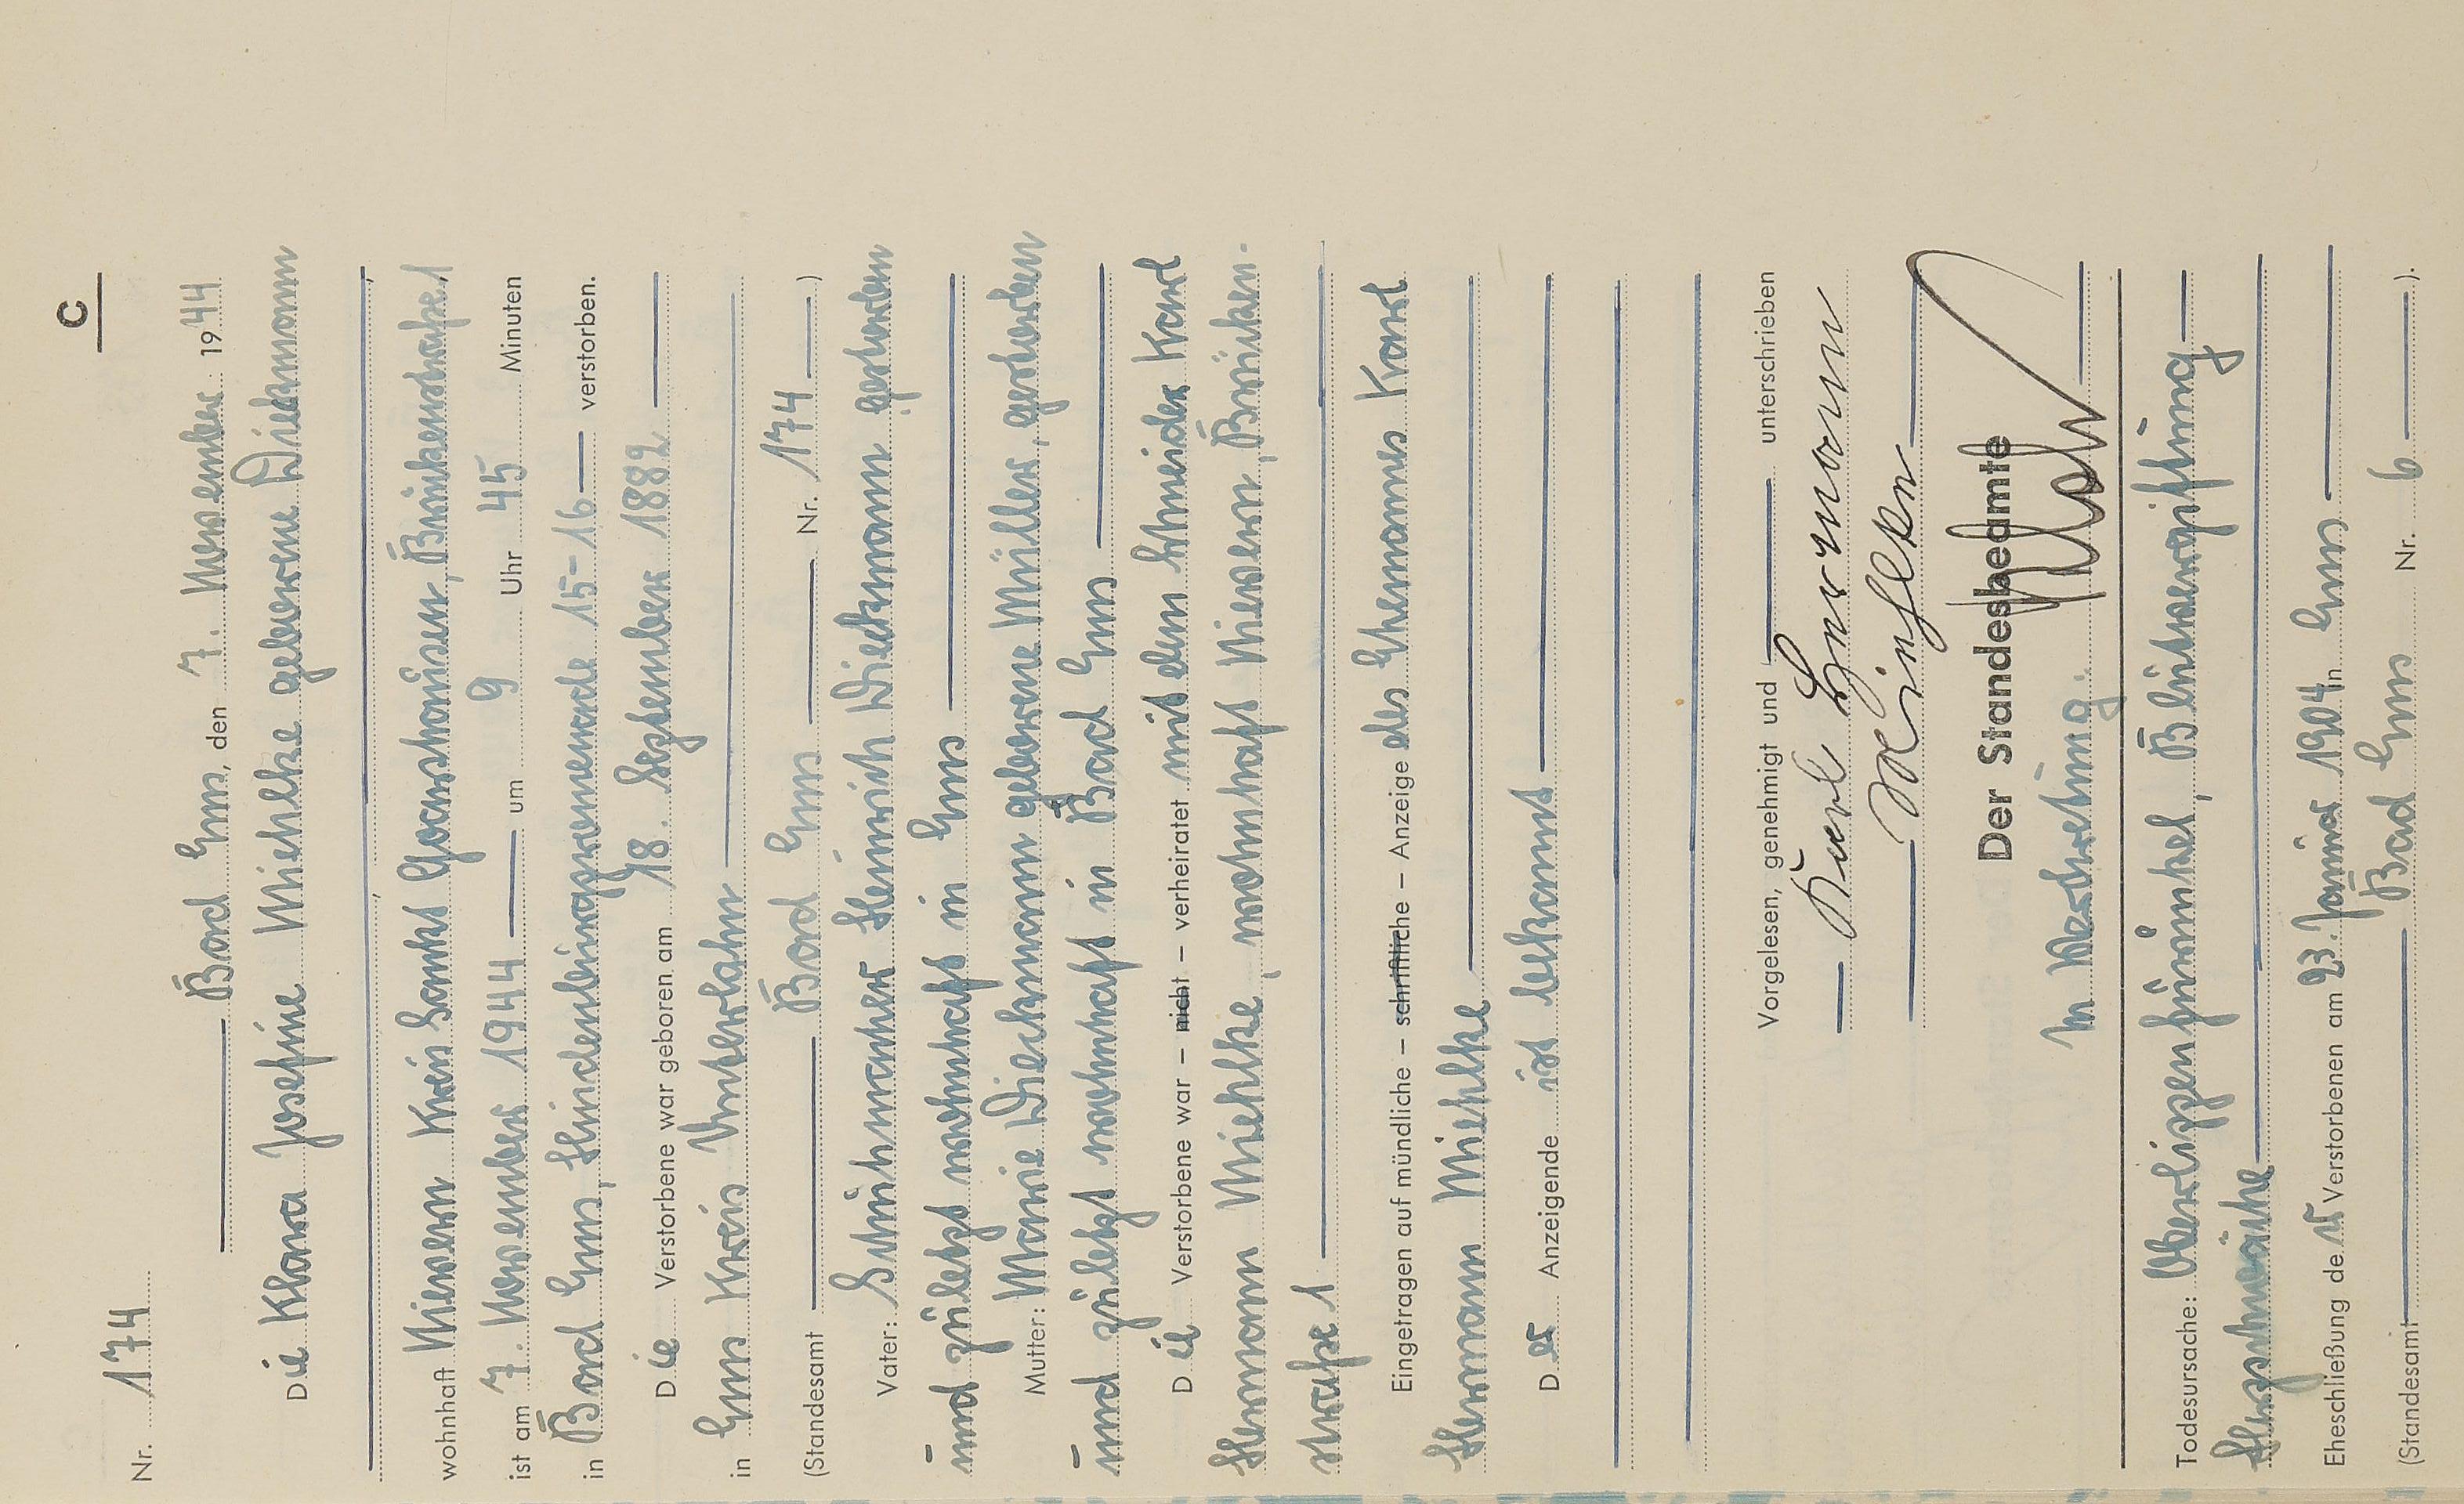 C
Nr. 174
Bad Ems, den 7. November 1944
Die Klara Josefine Miehlke geborene Diekmann
wohnhaft Nievern Kreis Sankt Goarshausen, Brückenstraße 1
ist am 7. November 1944 um 9 Uhr 45 Minuten
in Bad Ems, Hindenburgpromenade 15-16 verstorben.
Die Verstorbene war geboren am 18. September 1882
in Ems Kreis Unterlahn
(Standesamt Bad Ems Nr. 174)
Vater: Schuhmacher Heinrich Dieckmann gestorben
und zuletzt wohnhaft in Ems
Mutter: Marie Dieckmann geborene Müller, gestorben
und zuletzt wohnhaft in Bad Ems
Die Verstorbene war – nicht – verheiratet mit dem Schneider Karl
Hermann Miehlke, wohnhaft Nievern, Brücken-
straße 1
Eingetragen auf mündliche – schriftliche – Anzeige des Ehemannes Karl
Hermann Miehlke
Der Anzeigende ist bekannt
Vorgelesen, genehmigt und unterschrieben
Karl Hermann
Miehlke
Der Standesbeamte
In Vertretung:
Todesursache: Oberlippenfurunkel, Blutvergiftung
Herzschwäche
Eheschließung der Verstorbenen am 23. Januar 1904 in Ems
(Standesamt Bad Ems Nr. 6).